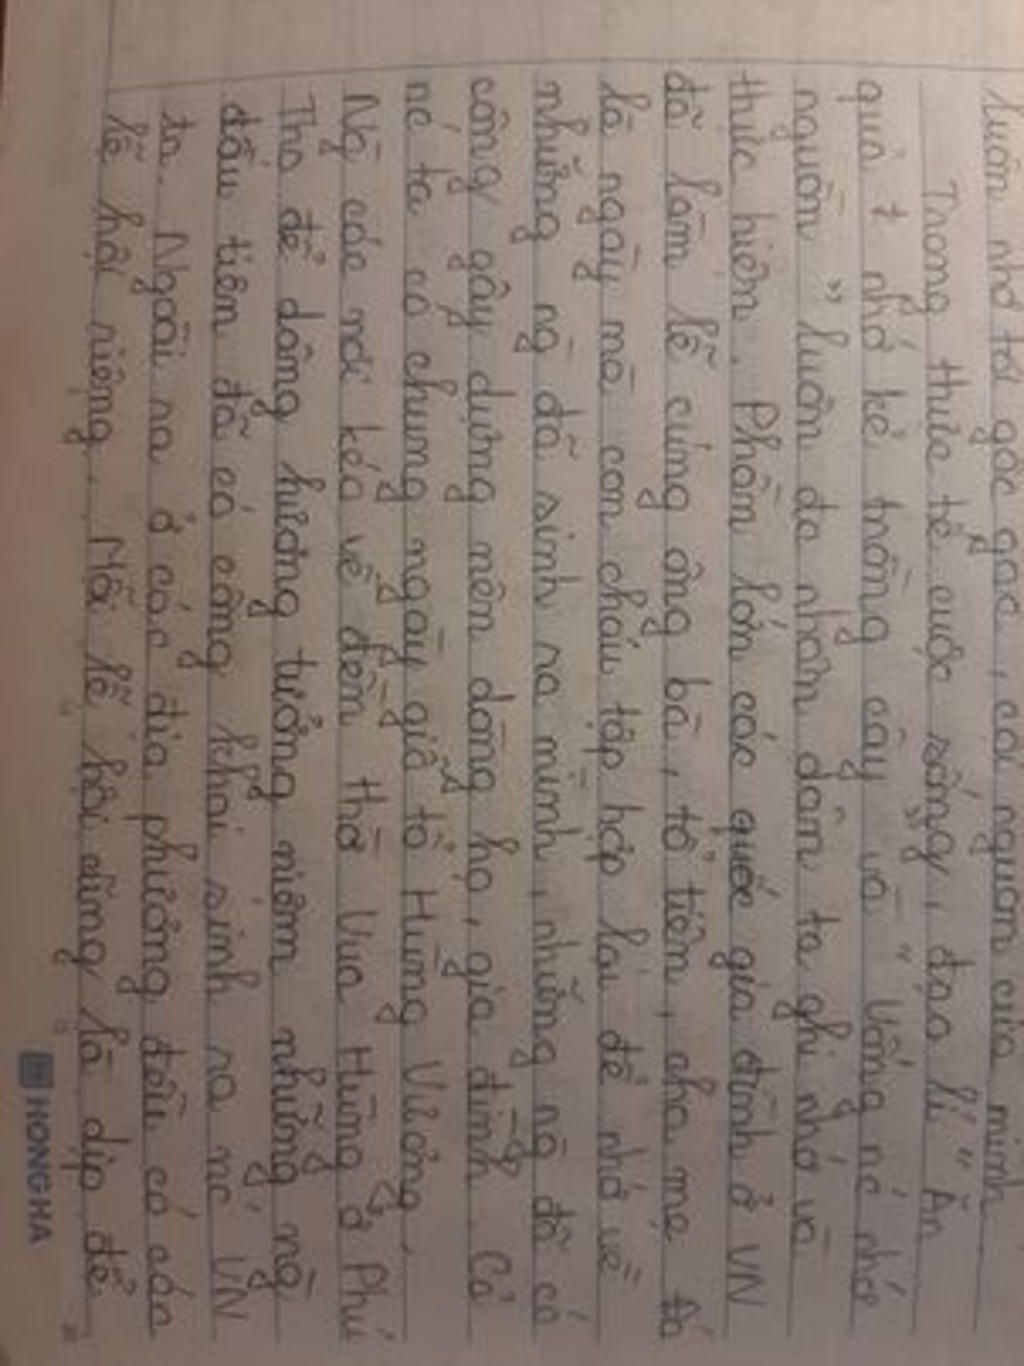 luôn nhớ tới gốc gác, cội nguồn của mình
Trong thực tế cuộc sống, đạo lí " Ăn
quả " nhớ kẻ trồng cây và " Uống nc nhớ
nguồn " luôn đc nhân dân ta ghi nhớ và
thực hiện. Phần lớn các quốc gia đình ở VN
đã làm lễ cúng ông bà, tổ tiên, cha mẹ. Đó
là ngày mà con cháu tập hợp lại để nhớ về
những ng̀ đã sinh ra mình, những ng̀ đã có
công gây dựng nên dòng họ, gia đình. Cả
nc ta có chung ngày giỗ tổ Hùng Vương,
Ng̀ các nơi kéo về đền thờ Vua Hùng ở Phú
Thọ để dâng hương tưởng niệm những ng̀
đầu tiên đã có công khai sinh ra nc VN
ta. Ngoài ra ở các địa phương đều có các
lễ hội riêng. Mỗi lễ hội cũng là dịp để
HONG HA